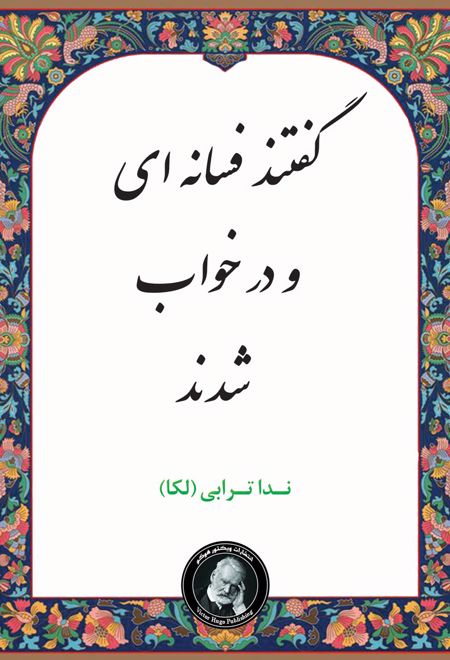 گفتند فسانه ای
و در خواب
شدند
ندا ترابی (لکا)
انتشارات ویکتور هوگو
Victor Hugo Publishing